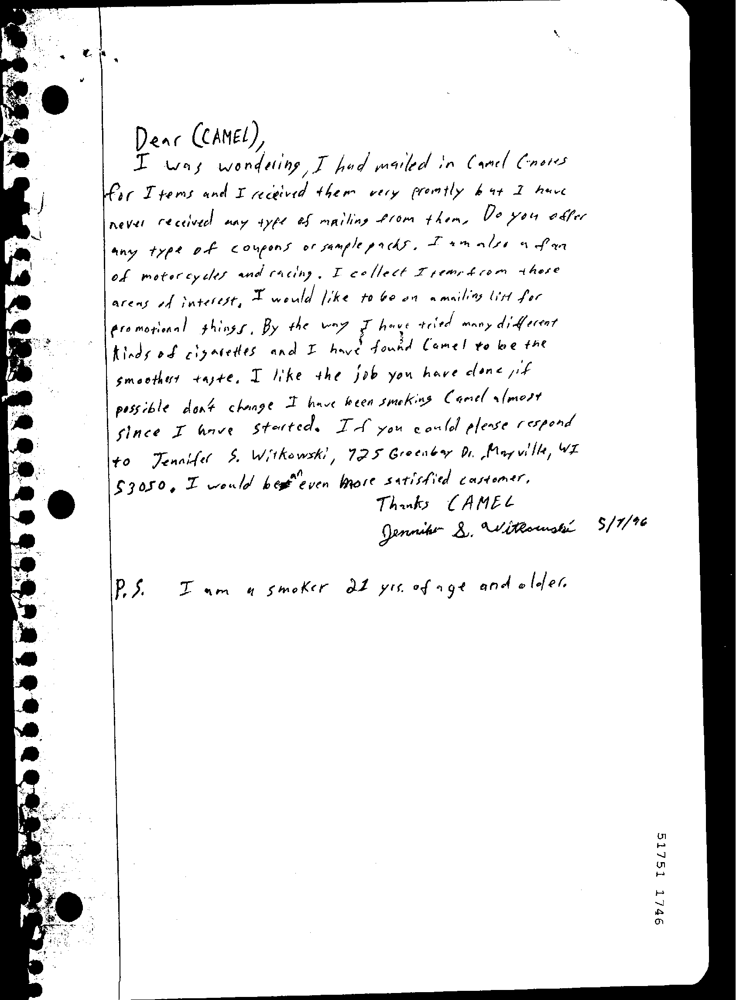 Dear (CAMEL),
I was wondering, I had mailed in Camel C-notes
for Items and I received them very promtly but I have
never received any type of mailing from them. Do you offer
any type of coupons or sample packs. I am also a fan
of motorcycles and racing. I collect Items from those
areas of interest. I would like to be on a mailing list for
promotional things. By the way I have tried many different
kinds of cigarettes and I have found Camel to be the
smoothest taste. I like the job you have done, if
possible don't change I have been smoking Camel almost
since I have started. If you could please respond
to Jennifer S. Witkowski, 725 Greenbay Dr. Mayville, WI
53050. I would be an even more satisfied customer.
Thanks CAMEL
Jennifer S. Witkowski 5/7/96
P.S. I am a smoker 21 yrs. of age and older.
51751 1746